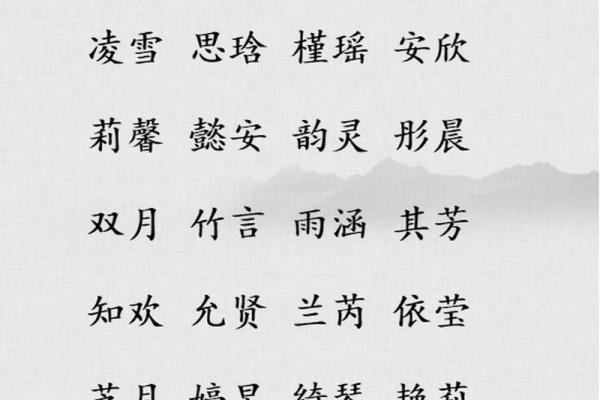 凌雪 思琀 槿瑶 安欣
莉馨 懿安 韵灵 彤晨
双月 竹言 雨涵 其芳
知欢 允贤 兰芮 依莹